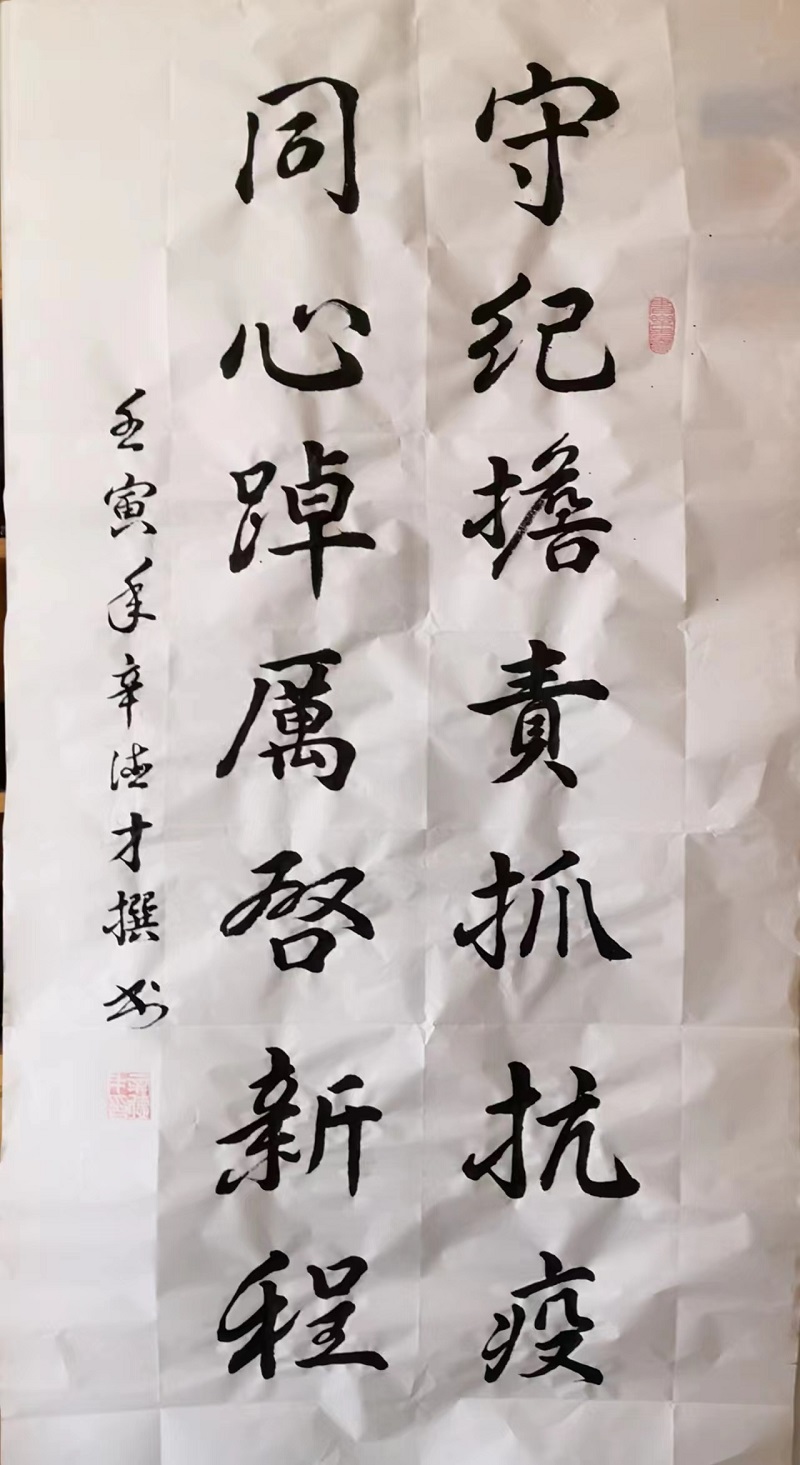 守纪擔責抓抗疫
同心踔厲啓新程
壬寅年辛德才撰书